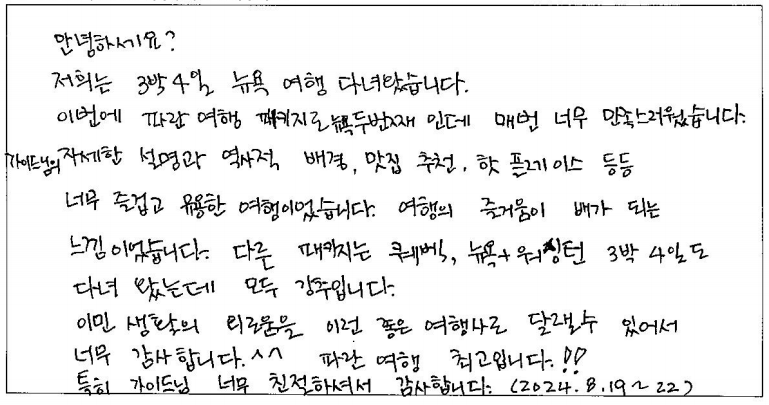 안녕하세요?
저희는 3박4일 뉴욕 여행 다녀왔습니다.
이번에 파란여행 패키지로 뉴욕두번째 인데 매번 너무 만족스러웠습니다.
가이드님의 자세한 설명과 역사적 배경, 맛집 추천, 핫 플레이스 등등
너무 즐겁고 유용한 여행이었습니다. 여행의 즐거움이 배가 되는
느낌이었습니다. 다른 패키지는 퀘벡, 뉴욕+워싱턴 3박 4일도
다녀 왔는데 모두 강추입니다.
이민 생활의 외로움을 이런 좋은 여행사로 달랠수 있어서
너무 감사합니다.^^ 파란여행 최고입니다.!!
특히 가이드님 너무 친절하셔서 감사합니다. (2024.8.19~22)